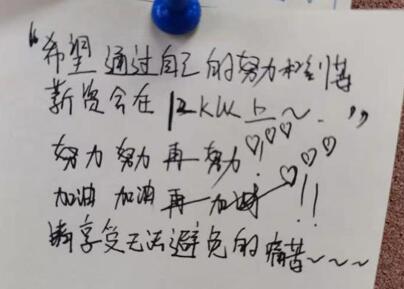 “希望通过自己的努力 得到其
薪资会在 12KW上~.”
努力 努力 再一努力!♡♡♡
加油 加油 再一加油!!♡♡♡
请享受无法避免的痛苦~~~